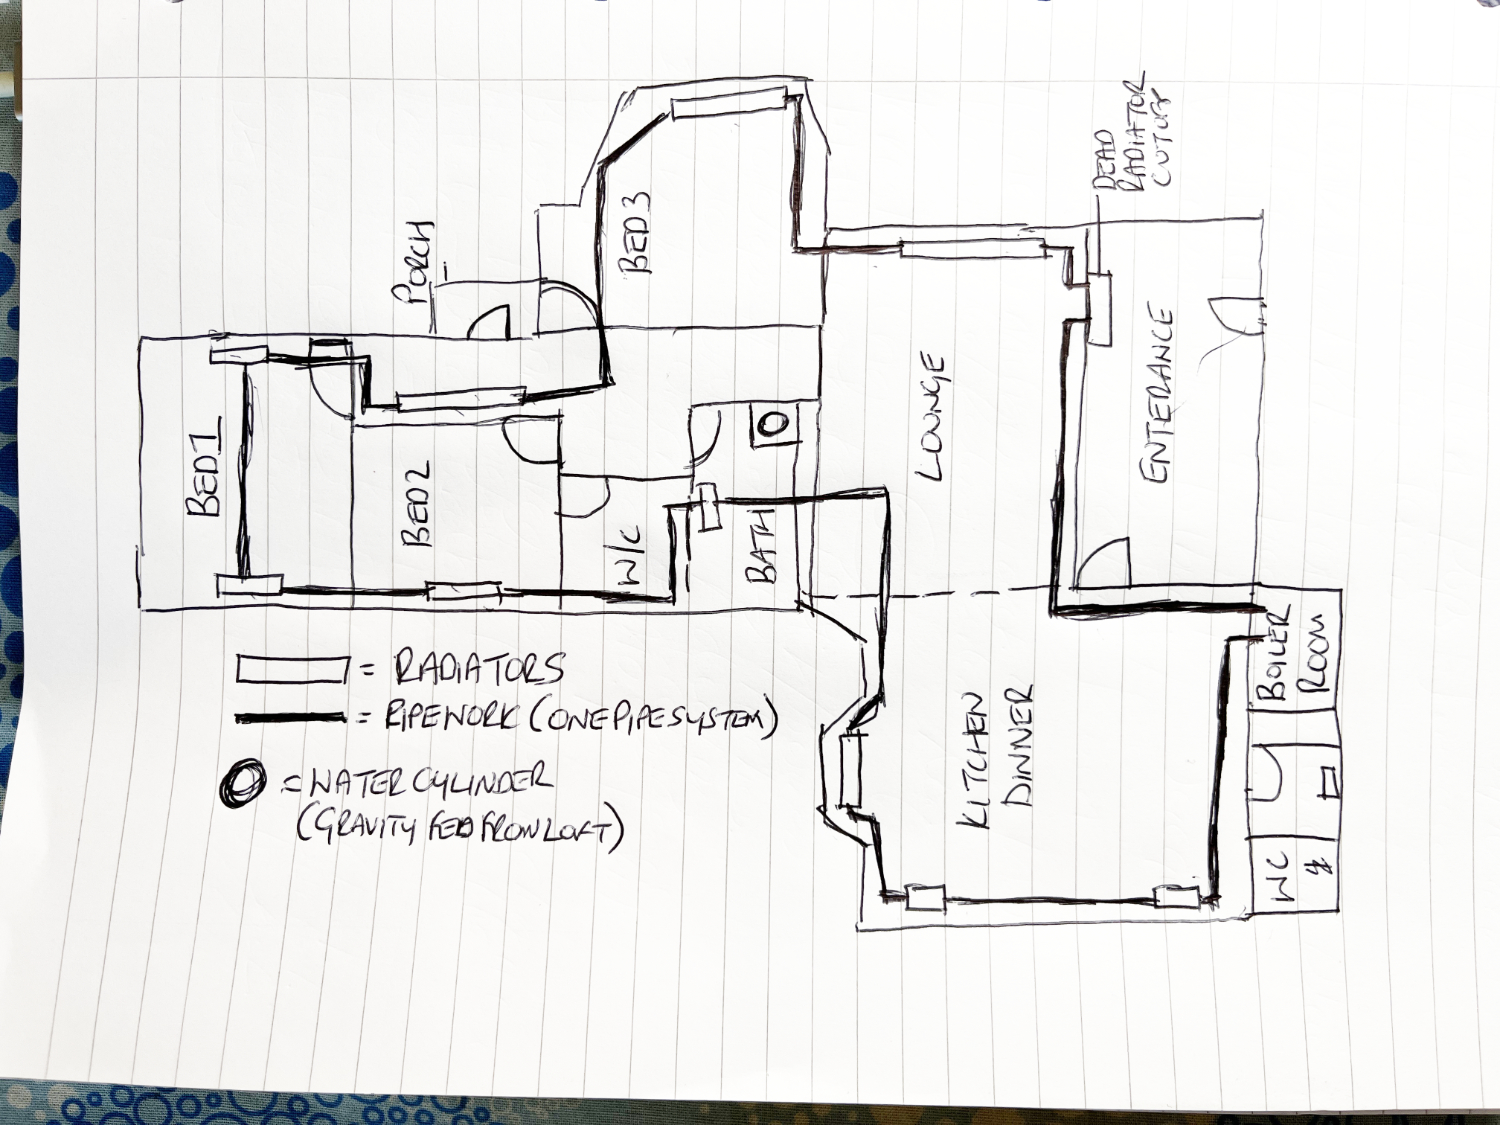 PORCH
BED3
DEAD
RADIATOR
CUTOFF
BED1
BED2
W/C
BATH
LOUNGE
ENTERANCE
KITCHEN
DINNER
BOILER
ROOM
WC
= RADIATORS
= PIPEWORK (ONE PIPE SYSTEM)
= WATER CYLINDER
(GRAVITY FED FROM LOFT)